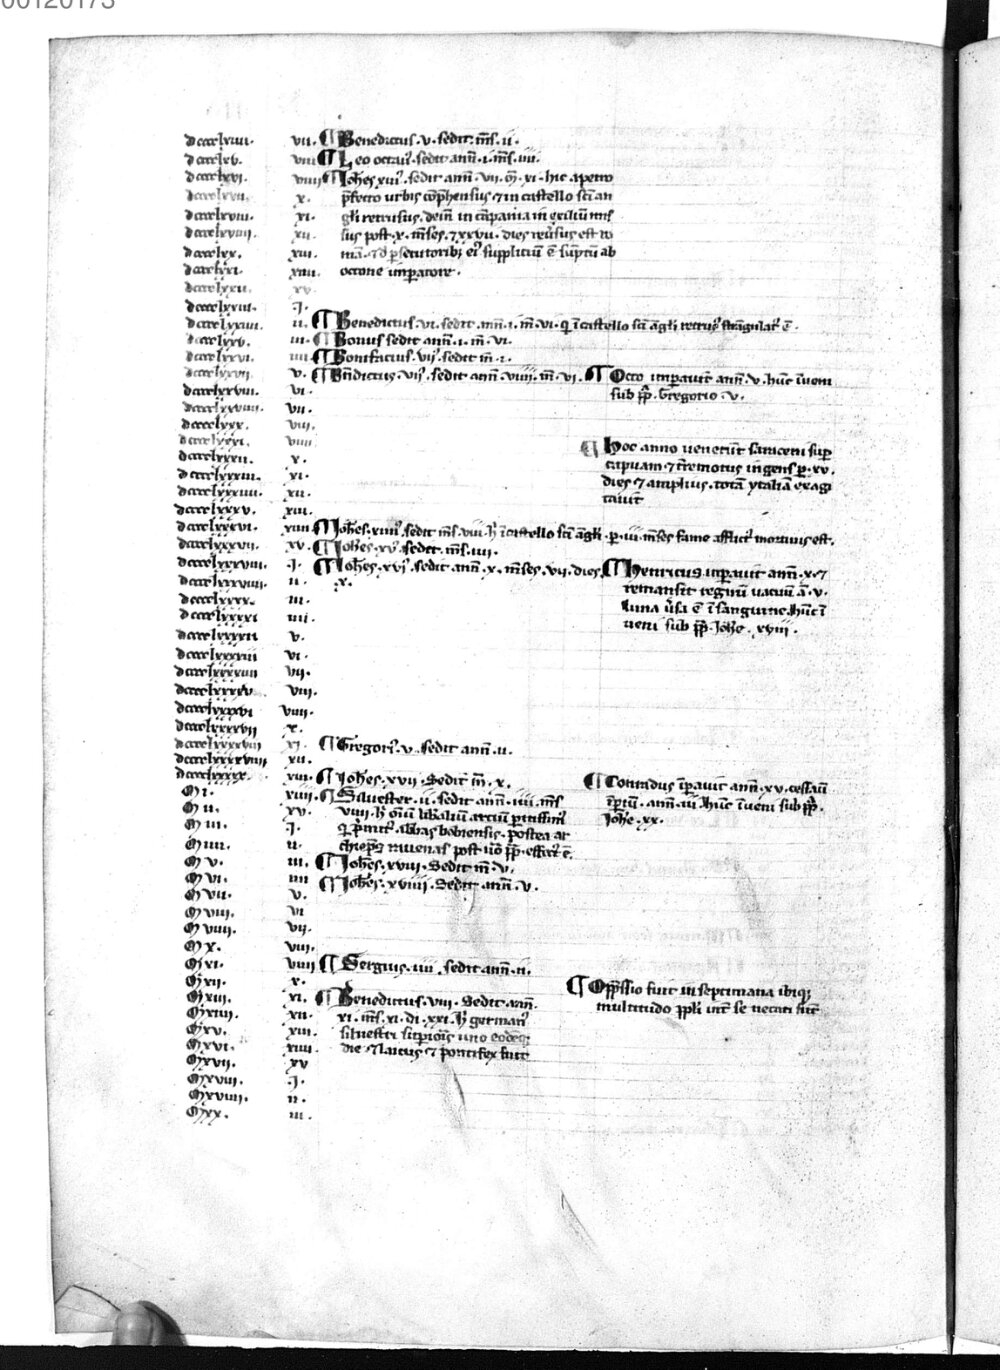 00120173
dcccclxiiii. vii. ¶ Benedictus .v. sedit m̄s .ii.
dcccclxv. viii ¶ Leo octauꝰ sedit ann̄ .i. m̄s .iiii.
dcccclxvi. viiii ¶ Joh̄es xiiiꝰ sedit ann̄ .vii. m̄ .xi. hic a petro
dcccclxvii. x. p̄fecto urbis cōp̄hensus ⁊ in castello sc̄i an
dcccclxviii. xi. gl̄i retrusus, dein̄ in cāpania in exilium mis
dcccclxviiii. xii. sus post .x. m̄ses ⁊ xxviii. dies reu̓sus est ro
dcccclxx. xiii. mā. ⁊ d̓ ꝑsecutoribꝫ eiꝰ suppliciū ē sūptū ab
dcccclxxi. xiiii. octone imꝑatore.
dcccclxxii. xv.
dcccclxxiii. .j.
dcccclxxiiii. ii. ¶ Benedictus .vi. sedit ann̄ .i. m̄ .vi. q̓ ī castello sc̄i āgl̄i retrusꝰ strāgulatꝰ ē.
dcccclxxv. iii. ¶ Bonus sedit ann̄ .i. m̄ .vi.
dcccclxxvi. iiii ¶ Bonifacius .viiꝰ sedit m̄ .i.
dcccclxxvii v. ¶ Bn̄dictus .viiꝰ sedit ann̄ .viiii. m̄ .vi. ¶ Octo imꝑauit ann̄ .v. hūc īueni
dcccclxxviii. vi. sub p̄p̄. Gregorio .v.
dcccclxxviiii. vii.
dcccclxxx. viii.
dcccclxxxi. viiii ¶ Hoc anno uenerūt saraceni suꝑ
dcccclxxxii. x. capuam ⁊ t̄remotus ingens ꝑ .xv.
dcccclxxxiii. xi. dies ⁊ amplius. totā ytaliā exagi
dcccclxxxiiii. xii. tauit
dcccclxxxv. xiii.
dcccclxxxvi. xiiii ¶ Joh̄es .xiiiiꝰ sedit m̄s .viii. h̓ ī castello sc̄i āgl̄i .ꝑ. iiii m̄ses fame afflictꝰ mortuus est.
dcccclxxxvii. xv. ¶ Joh̄es .xvꝰ sedit m̄s .iiii.
dcccclxxxviii. .j. ¶ Joh̄es .xviꝰ sedit ann̄ .x. m̄ses .vii. dies ¶ Henricus imꝑauit ann̄ .x. ⁊
dcccclxxxviiii. ii. .x. remansit regnū uacuū ā .v.
dcccclxxxx. iii. luna u̓sa ē ī sanguine. hūc ī
dcccclxxxxi iiii. ueni sub p̄p̄. Joh̄e .xviii.
dcccclxxxxii v.
dcccclxxxxiii vi.
dcccclxxxxiiii vii.
dcccclxxxxv viii.
dcccclxxxxvi viiii.
dcccclxxxxvii x.
dcccclxxxxviii xi. ¶ Gregoriꝰ .v. sedit ann̄ .ii.
dcccclxxxxviiii xii.
xiii. ¶ Joh̄es .xvii. Sedit m̄ .x. ¶ Conradus īꝑauit ann̄ .xv. cessauit
M i. xiiii. ¶ Siluester .ii. sedit ann̄ .iiii. m̄s īꝑiū. ann̄ hūc īueni sub p̄p̄.
M ii. xv. viiii. h̓ om̄iū libaliū artiū ꝑitissimꝰ Joh̄e .xx.
M iii. .j. q̓ p̓mitꝰ abbas bobiensis. postea ar
M iiii. ii. chiep̄s rauenas post u̓o p̄p̄. effectꝰ ē.
M v. iii. ¶ Joh̄es .xviii. Sedit m̄ .v.
M vi. iiii ¶ Joh̄es .xviiii. Sedit ann̄ .v.
M vii. v.
M viii. vi
M viiii. vii.
M x. viii.
M xi. viiii ¶ Sergius .iiii. sedit ann̄ .ii.
M xii. x. ¶ Opp̄ssio fuit in septimana ibiqꝫ
M xiii. xi. ¶ Benedictus .viii. Sedit ann̄. multitudo pp̄li int̄ se necati sūt
M xiiii. xii. xi. m̄s .xi. di .xxi. h̓ germanꝰ
M xv. xiii. siluestri uno eodēqꝫ
M xvi. xiiii. die ⁊ laicus ⁊ pontifex fuit
M xvii. xv
M xviii. .j.
M xviiii. ii.
M xx. iii.